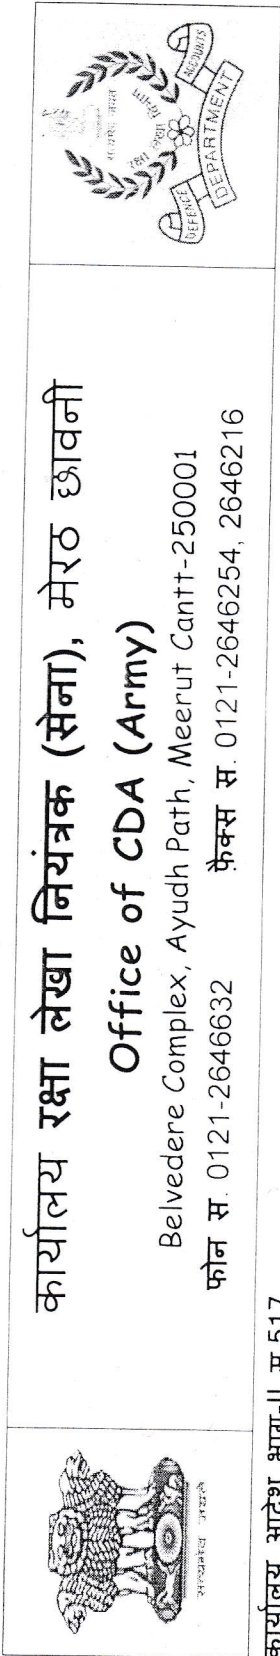 सत्यमेव जयते
कार्यालय रक्षा लेखा नियंत्रक (सेना), मेरठ छावनी
Office of CDA (Army)
Belvedere Complex, Ayudh Path, Meerut Cantt-250001
फोन स. 0121-2646632 फ़ैक्स स. 0121-2646254, 2646216
DEFENCE ACCOUNTS
DEPARTMENT
कार्यालय आदेश भाग-II स 517